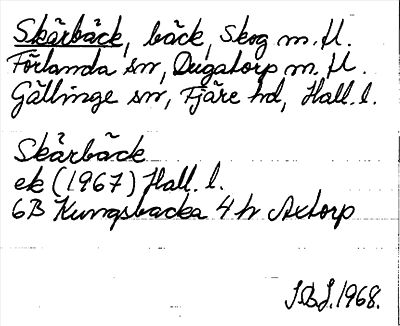 Skärbäck, bäck, Skog m. fl.
Förlanda sn, Dugatorp m. fl.
Gällinge sn, Fjäre hd, Hall. l.
Skärbäck
ek (1967) Hall. l.
6B Kungsbacka 4 h Axtorp
J.B.J. 1968.